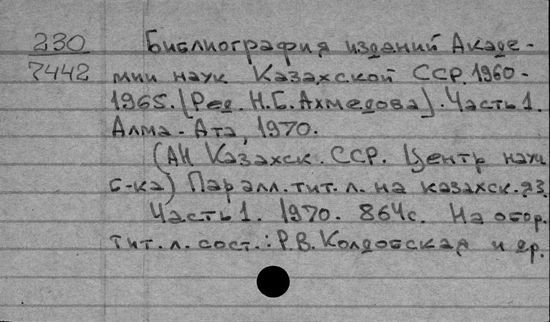 230 Библиография изданий Акаде-
7442 мии наук Казахской ССР. 1960-
1965. [Ред. Н.Б. Ахмедова]. Часть 1.
Алма-Ата, 1970.
(АН Казахск. ССР. Центр науч
б-ка) Паралл. тит. л. на казахск. яз.
Часть 1. 1970. 864с. На обор.
тит. л. сост.: Р.В. Колдобская и др.